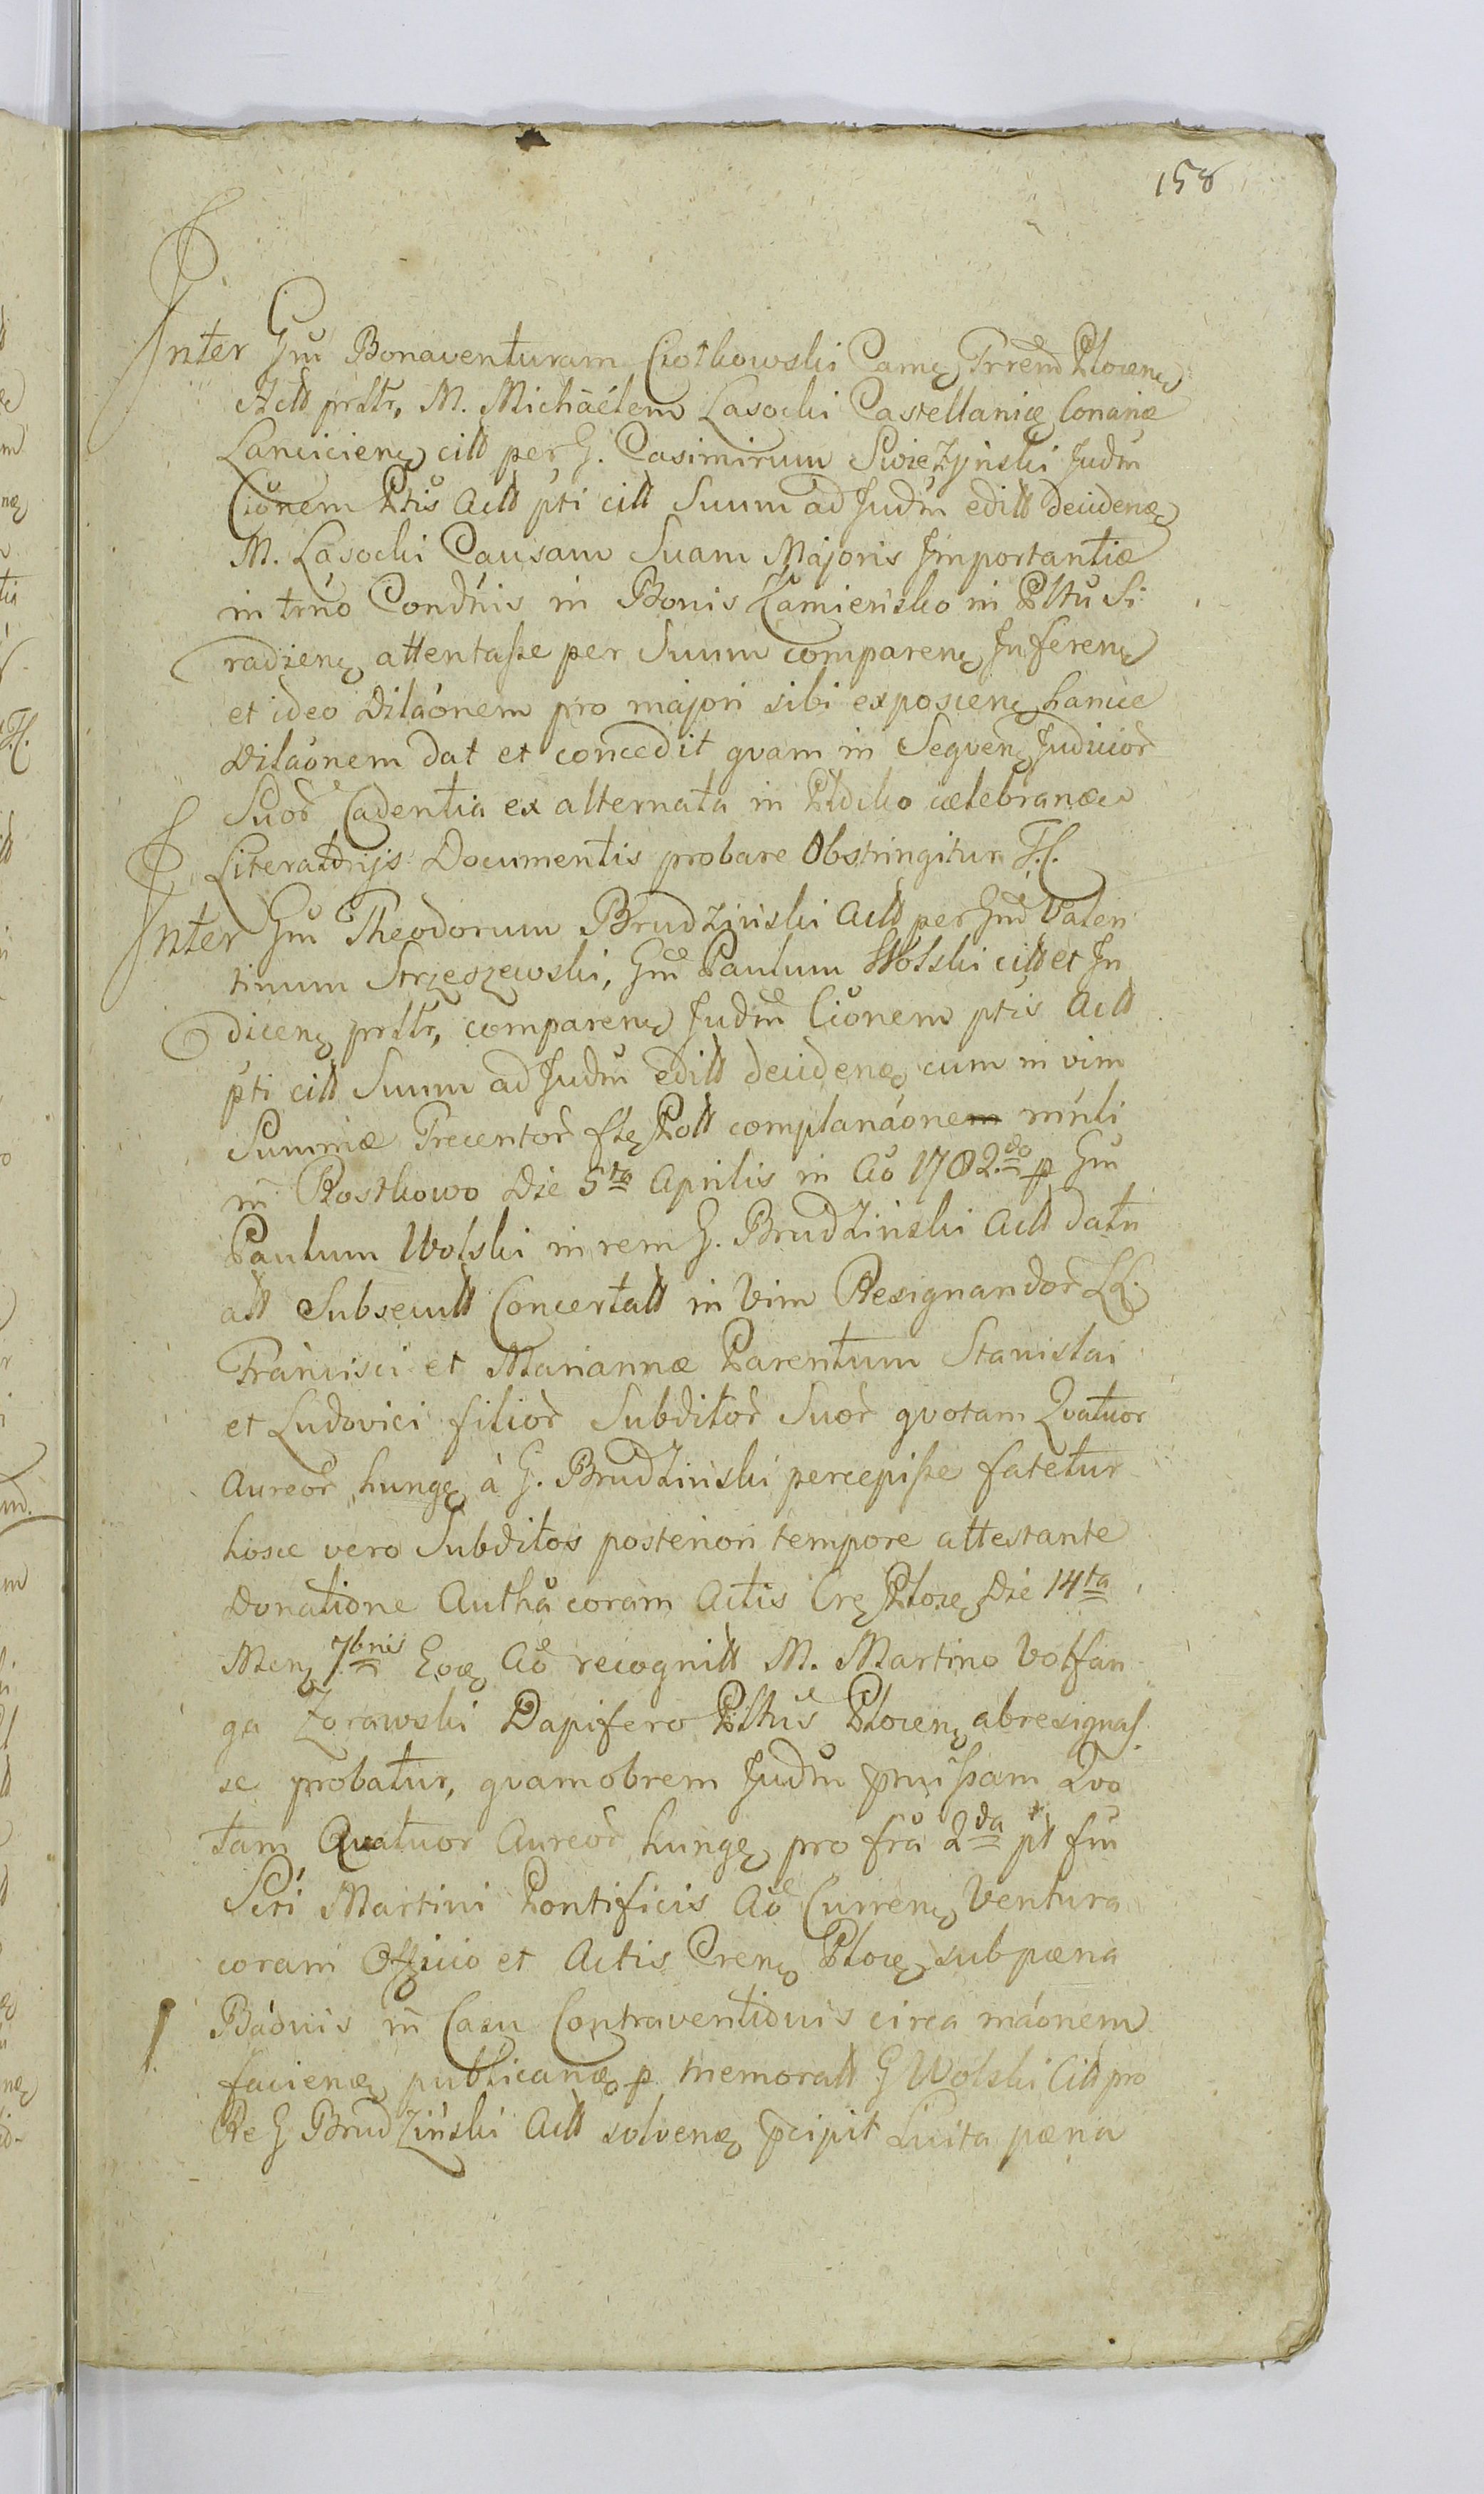 158
Inter Gnu Bonaventuram Ciołkowski Camę Trrend Plocenę
Actt prsttr, M. Michàélem Lasocki Castellanicę Conariæ
Lancicienę citt per G. Casimirum Swiezyński Judm
Cionem Ptis Actt pti citt Suum ad Judm editt decidenę
M. Lasocki Causam Suam Majoris Importantiæ
in trno Condnis in Bonis Kamiensko in Pltu Si
radienę attentasse per Suum comparenę Inferenę
et ideo Dilaónem pro majori sibi exposcenę hancce
Dilaónem dat et concedit qvam in Seqvenę Judicior
Suor Cadentia ex alternata in celebranæ
Literatorijs Documentis probare Obstringitur. T. C.
Inter Gnu Theodorum Brudzinski Actt per Gnu Valen
tinum Strzeszewski, Gnu Paulum Wolski citt et In
dicenę prsttr, comparenę Judm Cionem ptis Actt
pti citt Suum ad Judm editt decidenę, cum in vim
Summæ Trecentor flę Pott complanáonem mnli
in Rostkowo Die 5ta Aprilis in Ao 1782do p Gnu
Paulum Wolski in rem G. Brudzinski Actt datn
att Subsecutt Concertatt in Vim Resignandor LL.
Francisci et Mariannæ Parentum Stanislai
et Ludovici filior Subditor Suor qvotam Qvatuor
Aureor hungę à G. Brudzinski percepisse fatetur
hosce vero Subditos posteriori tempore attestante
Donatione Autha coram Actis Crę Plocę Die 14ta
Menę 7bris Eoę Ao recognitt M. Martino Volfan
ga Zorawski Dapifero Pltus Plocenę abresignas
se probatur, qvamobrem Judm pmissam Qvo
tam Quatuor Aureor hungę pro fra 2da pt fm
Scti Martini Pontificis Ao Currenę Ventura
coram Officio et Actis Crenę Plocę sub pæna
Báónis in Casu Contraventionis circa máonem
facienę publicanę p memoratt G Wolski Citt pro
Re G Brudzinski Actt solvenę pcipit Luita pæna